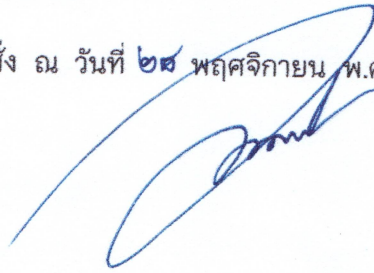 ั่ง ณ วันที่ ๒๘ พฤศจิกายน พ.ศ